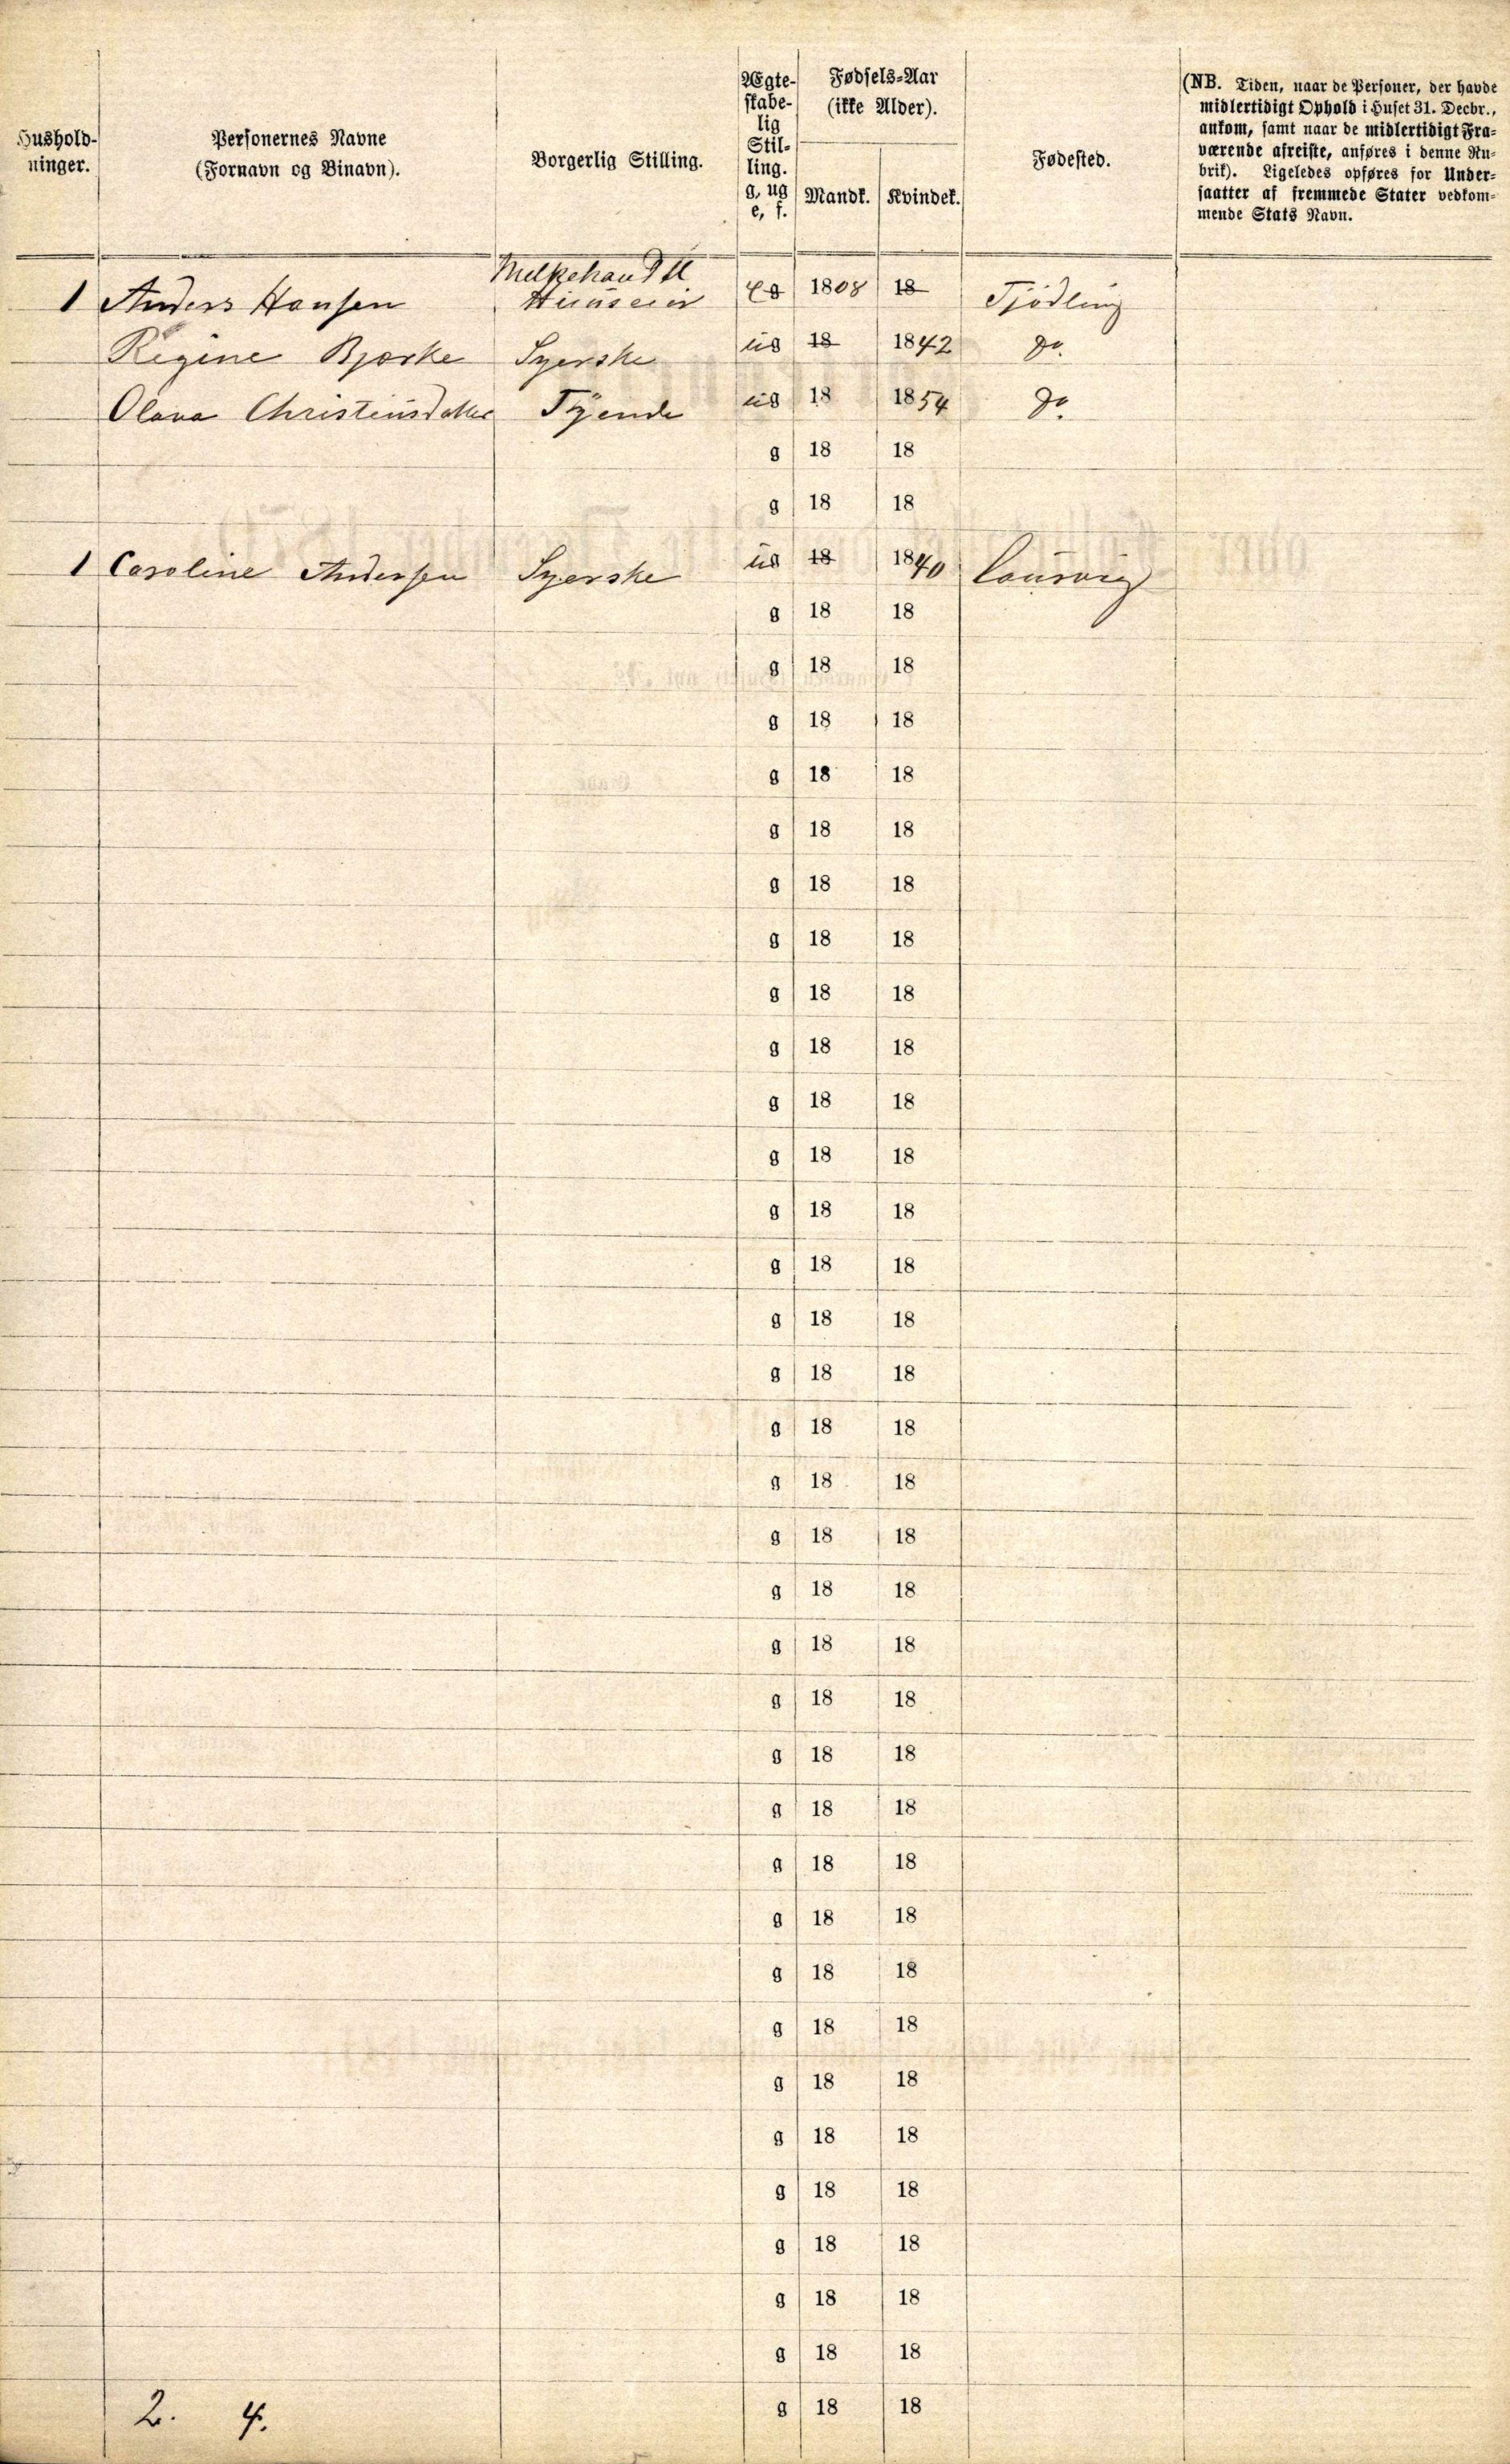 Hushold-
ninger.
Personernes Navne
(Fornavn og Binavn).
Borgerlig Stilling.
Ægte-
skabe-
lig
Stil-
ling.
g, ug
e, f.
Fødsels-Aar
(ikke Alder).
Mandk.
Kvindek.
Fødested.
(NB. Tiden, naar de Personer, der havde
midlertidigt Ophold i Huset 31. Decbr.,
ankom, samt naar de midlertidigt Fra-
værende afreiste, anføres i denne Ru-
brik). Ligeledes opføres for Under-
saatter af fremmede Stater vedkom-
mende Stats Navn.
Melkehandl
1 Anders Hansen Huuseier eg 1808 18 Tjødling
Regine Bjørke Syerske ug 18 1842 Do.
Olava Christensdatter Tyende ug 18 1854 Do.
g 18 18
g 18 18
1 Caroline Andersen Syerske ug 18 1840 Laurvig
g 18 18
g 18 18
g 18 18
g 18 18
g 18 18
g 18 18
g 18 18
g 18 18
g 18 18
g 18 18
g 18 18
g 18 18
g 18 18
g 18 18
g 18 18
g 18 18
g 18 18
g 18 18
g 18 18
g 18 18
g 18 18
g 18 18
g 18 18
g 18 18
g 18 18
g 18 18
g 18 18
g 18 18
g 18 18
g 18 18
g 18 18
g 18 18
g 18 18
g 18 18
2. 4.